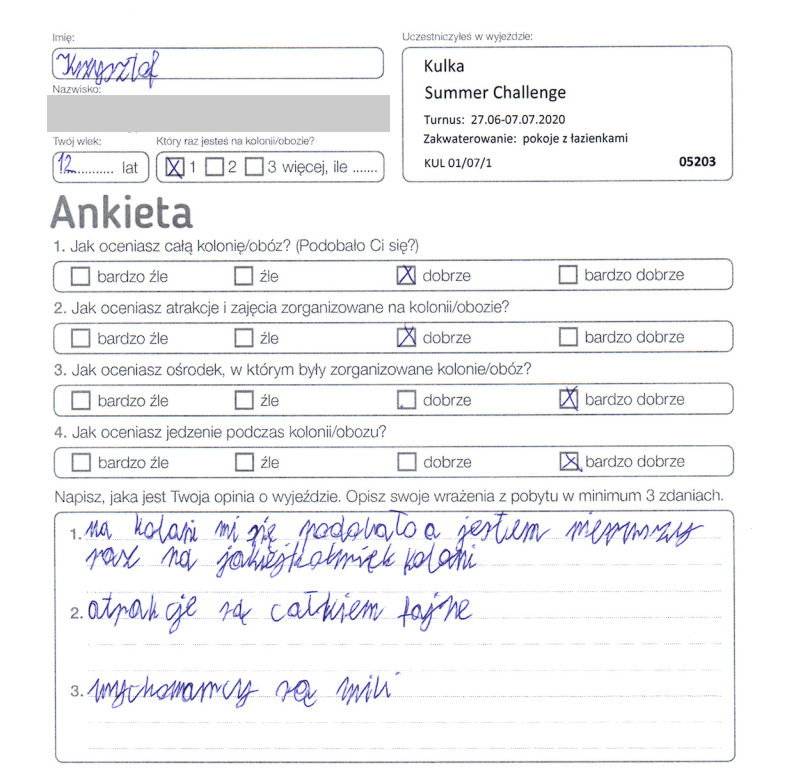 Imię:
Krzysztof
Nazwisko:
Twój wiek:
12 lat
Który raz jesteś na kolonii/obozie?
1 2 3 więcej, ile .......
Uczestniczyłeś w wyjeździe:
Kulka
Summer Challenge
Turnus: 27.06-07.07.2020
Zakwaterowanie: pokoje z łazienkami
KUL 01/07/1 05203
Ankieta
1. Jak oceniasz całą kolonię/obóz? (Podobało Ci się?)
bardzo źle źle dobrze bardzo dobrze
2. Jak oceniasz atrakcje i zajęcia zorganizowane na kolonii/obozie?
bardzo źle źle dobrze bardzo dobrze
3. Jak oceniasz ośrodek, w którym były zorganizowane kolonie/obóz?
bardzo źle źle dobrze bardzo dobrze
4. Jak oceniasz jedzenie podczas kolonii/obozu?
bardzo źle źle dobrze bardzo dobrze
Napisz, jaka jest Twoja opinia o wyjeździe. Opisz swoje wrażenia z pobytu w minimum 3 zdaniach.
1. na kolani mi się podobało a jestem pierwszy
raz na jakiejkolwiek kolani
2. atrakcje są całkiem fajne
3. wychowawcy są mili